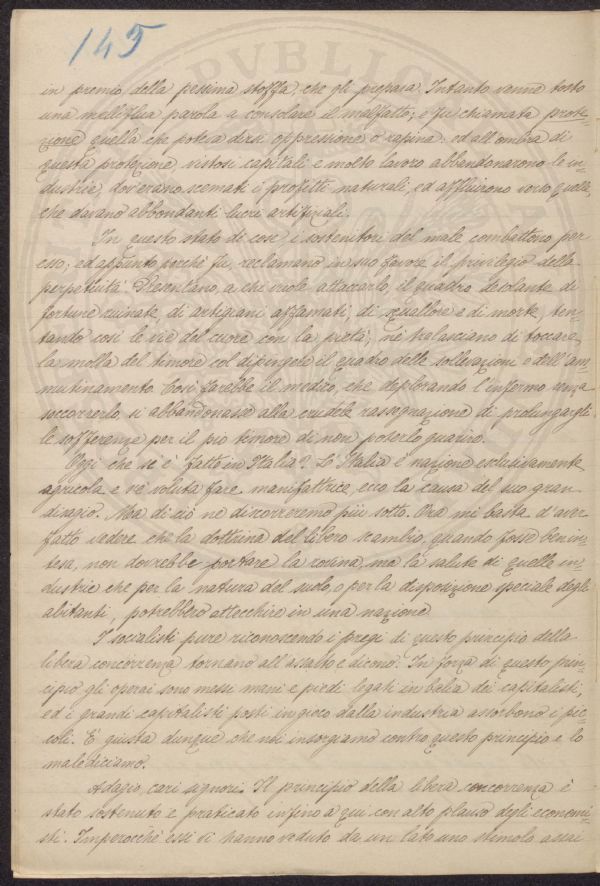 145
in premio della pessima stoffa, che gli prepara. Intanto venne tosto
una melliflua parola a consolare il malfatto; e fu chiamata prote-
zione quella che poteva dirsi oppressione, o rapina: ed all'ombra di
questa protezione, vistosi capitali e molto lavoro abbandonarono le in-
dustrie, dov'erano scemati i profitti naturali, ed affluirono verso quelle,
che davano abbondanti lucri artifiziali.
In questo stato di cose i sostenitori del male combattono per
esso; ed appunto perchè fu, reclamano in suo favore il privilegio della
perpetuità. Presentano, a chi vuole attaccarlo, il quadro desolante di
fortune ruinate, di artigiani affamati, di squallore e di morte, ten-
tando così le vie del cuore con la pietà; nè tralasciano di toccare
la molla del timore col dipingere il quadro delle sollevazioni e dell'am-
mutinamento. Così farebbe il medico, che deplorando l'infermo senza
soccorrerlo, si abbandonasse alla crudele rassegnazione di prolungargli
le sofferenze per il pio timore di non poterlo guarire.
Oggi che si è fatto in Italia? L'Italia è nazione esclusivamente
agricola e s'è voluta fare manifattrice, ecco la causa del suo gran
disagio. Ma di ciò ne discorreremo più sotto. Ora mi basta d'aver
fatto vedere che la dottrina del libero scambio, quando fosse benin-
tesa, non dovrebbe portare la rovina, ma la salute di quelle in-
dustrie che per la natura del suolo, o per la disposizione speciale degli
abitanti, potrebbero attecchire in una nazione.
I socialisti pure riconoscendo i pregi di questo principio della
libera concorrenza tornano all'assalto e dicono: In forza di questo prin-
cipio gli operai sono messi mani e piedi legati in balia dei capitalisti,
ed i grandi capitalisti posti in gioco dalla industria assorbono i pic-
coli. È giusta dunque che noi insorgiamo contro questo principio e lo
malediciamo.
Adagio, cari signori. Il principio della libera concorrenza è
stato sostenuto e praticato infino a qui con alto plauso degli economi-
sti. Imperocchè essi vi hanno veduto da un lato uno stimolo assai